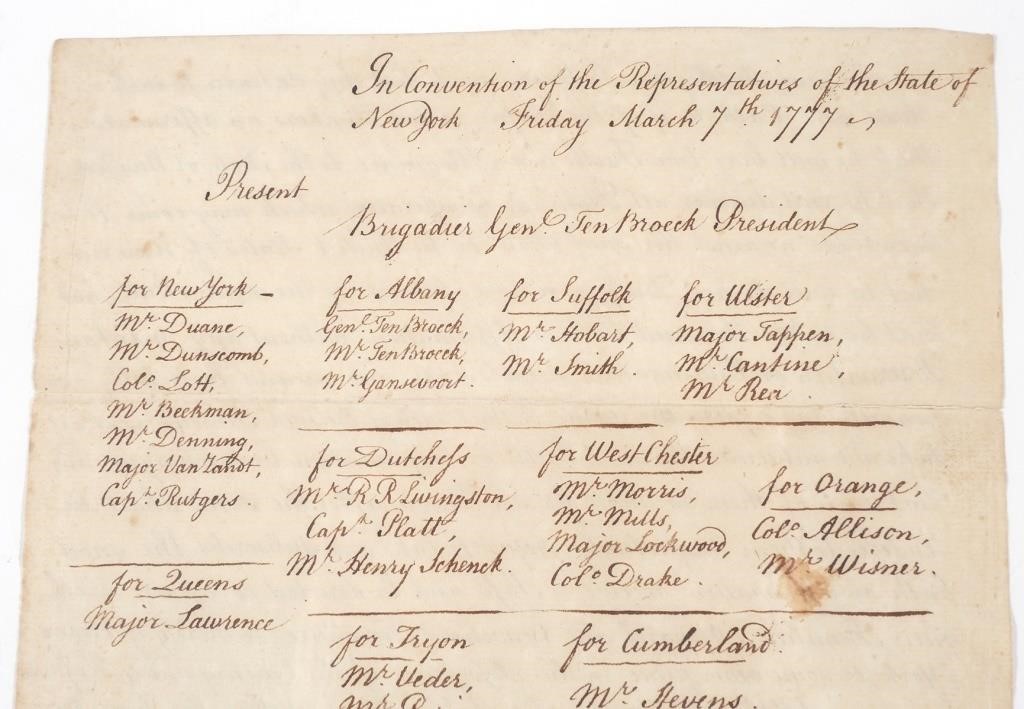 In Convention of the Representatives of the State of
New York Friday March 7th 1777
Present
Brigadier Genl. Ten Broeck President
for New York
Mr. Duane,
Mr. Dunscomb,
Colo. Lott,
Mr. Beekman,
Mr. Denning,
Major Van Zandt,
Capt. Rutgers.
for Albany
Genl. Ten Broeck,
Mr. Ten Broeck,
Mr. Gansevoort.
for Suffolk
Mr. Hobart,
Mr. Smith.
for Ulster
Major Tappen,
Mr. Cantine,
Mr. Rea.
for Dutchess
Mr. R R Livingston,
Capt. Platt,
Mr. Henry Schenck.
for West Chester
Mr. Morris,
Mr. Mills,
Major Lockwood,
Colo. Drake.
for Orange,
Colo. Allison,
Mr. Wisner.
for Queens
Major Lawrence
for Tryon
Mr. Veder,
Mr.
for Cumberland.
Mr. Stevens.